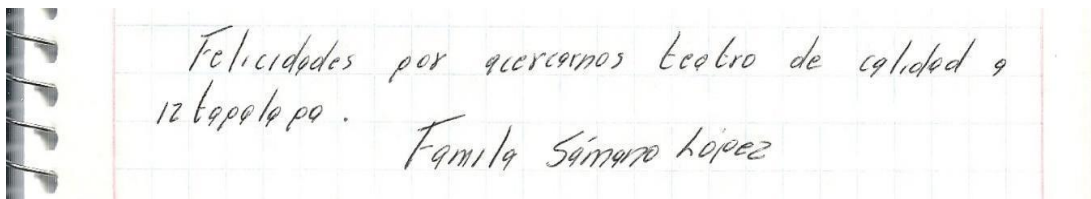 Felicidades por acercarnos teatro de calidad a
iztapalapa.
Famila Sámano López